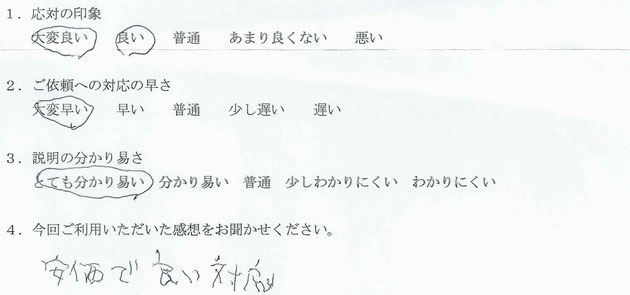 １．応対の印象
大変良い 良い 普通 あまり良くない 悪い
２．ご依頼への対応の早さ
大変早い 早い 普通 少し遅い 遅い
３．説明の分かり易さ
とても分かり易い 分かり易い 普通 少しわかりにくい わかりにくい
４．今回ご利用いただいた感想をお聞かせください。
安価で良い対応